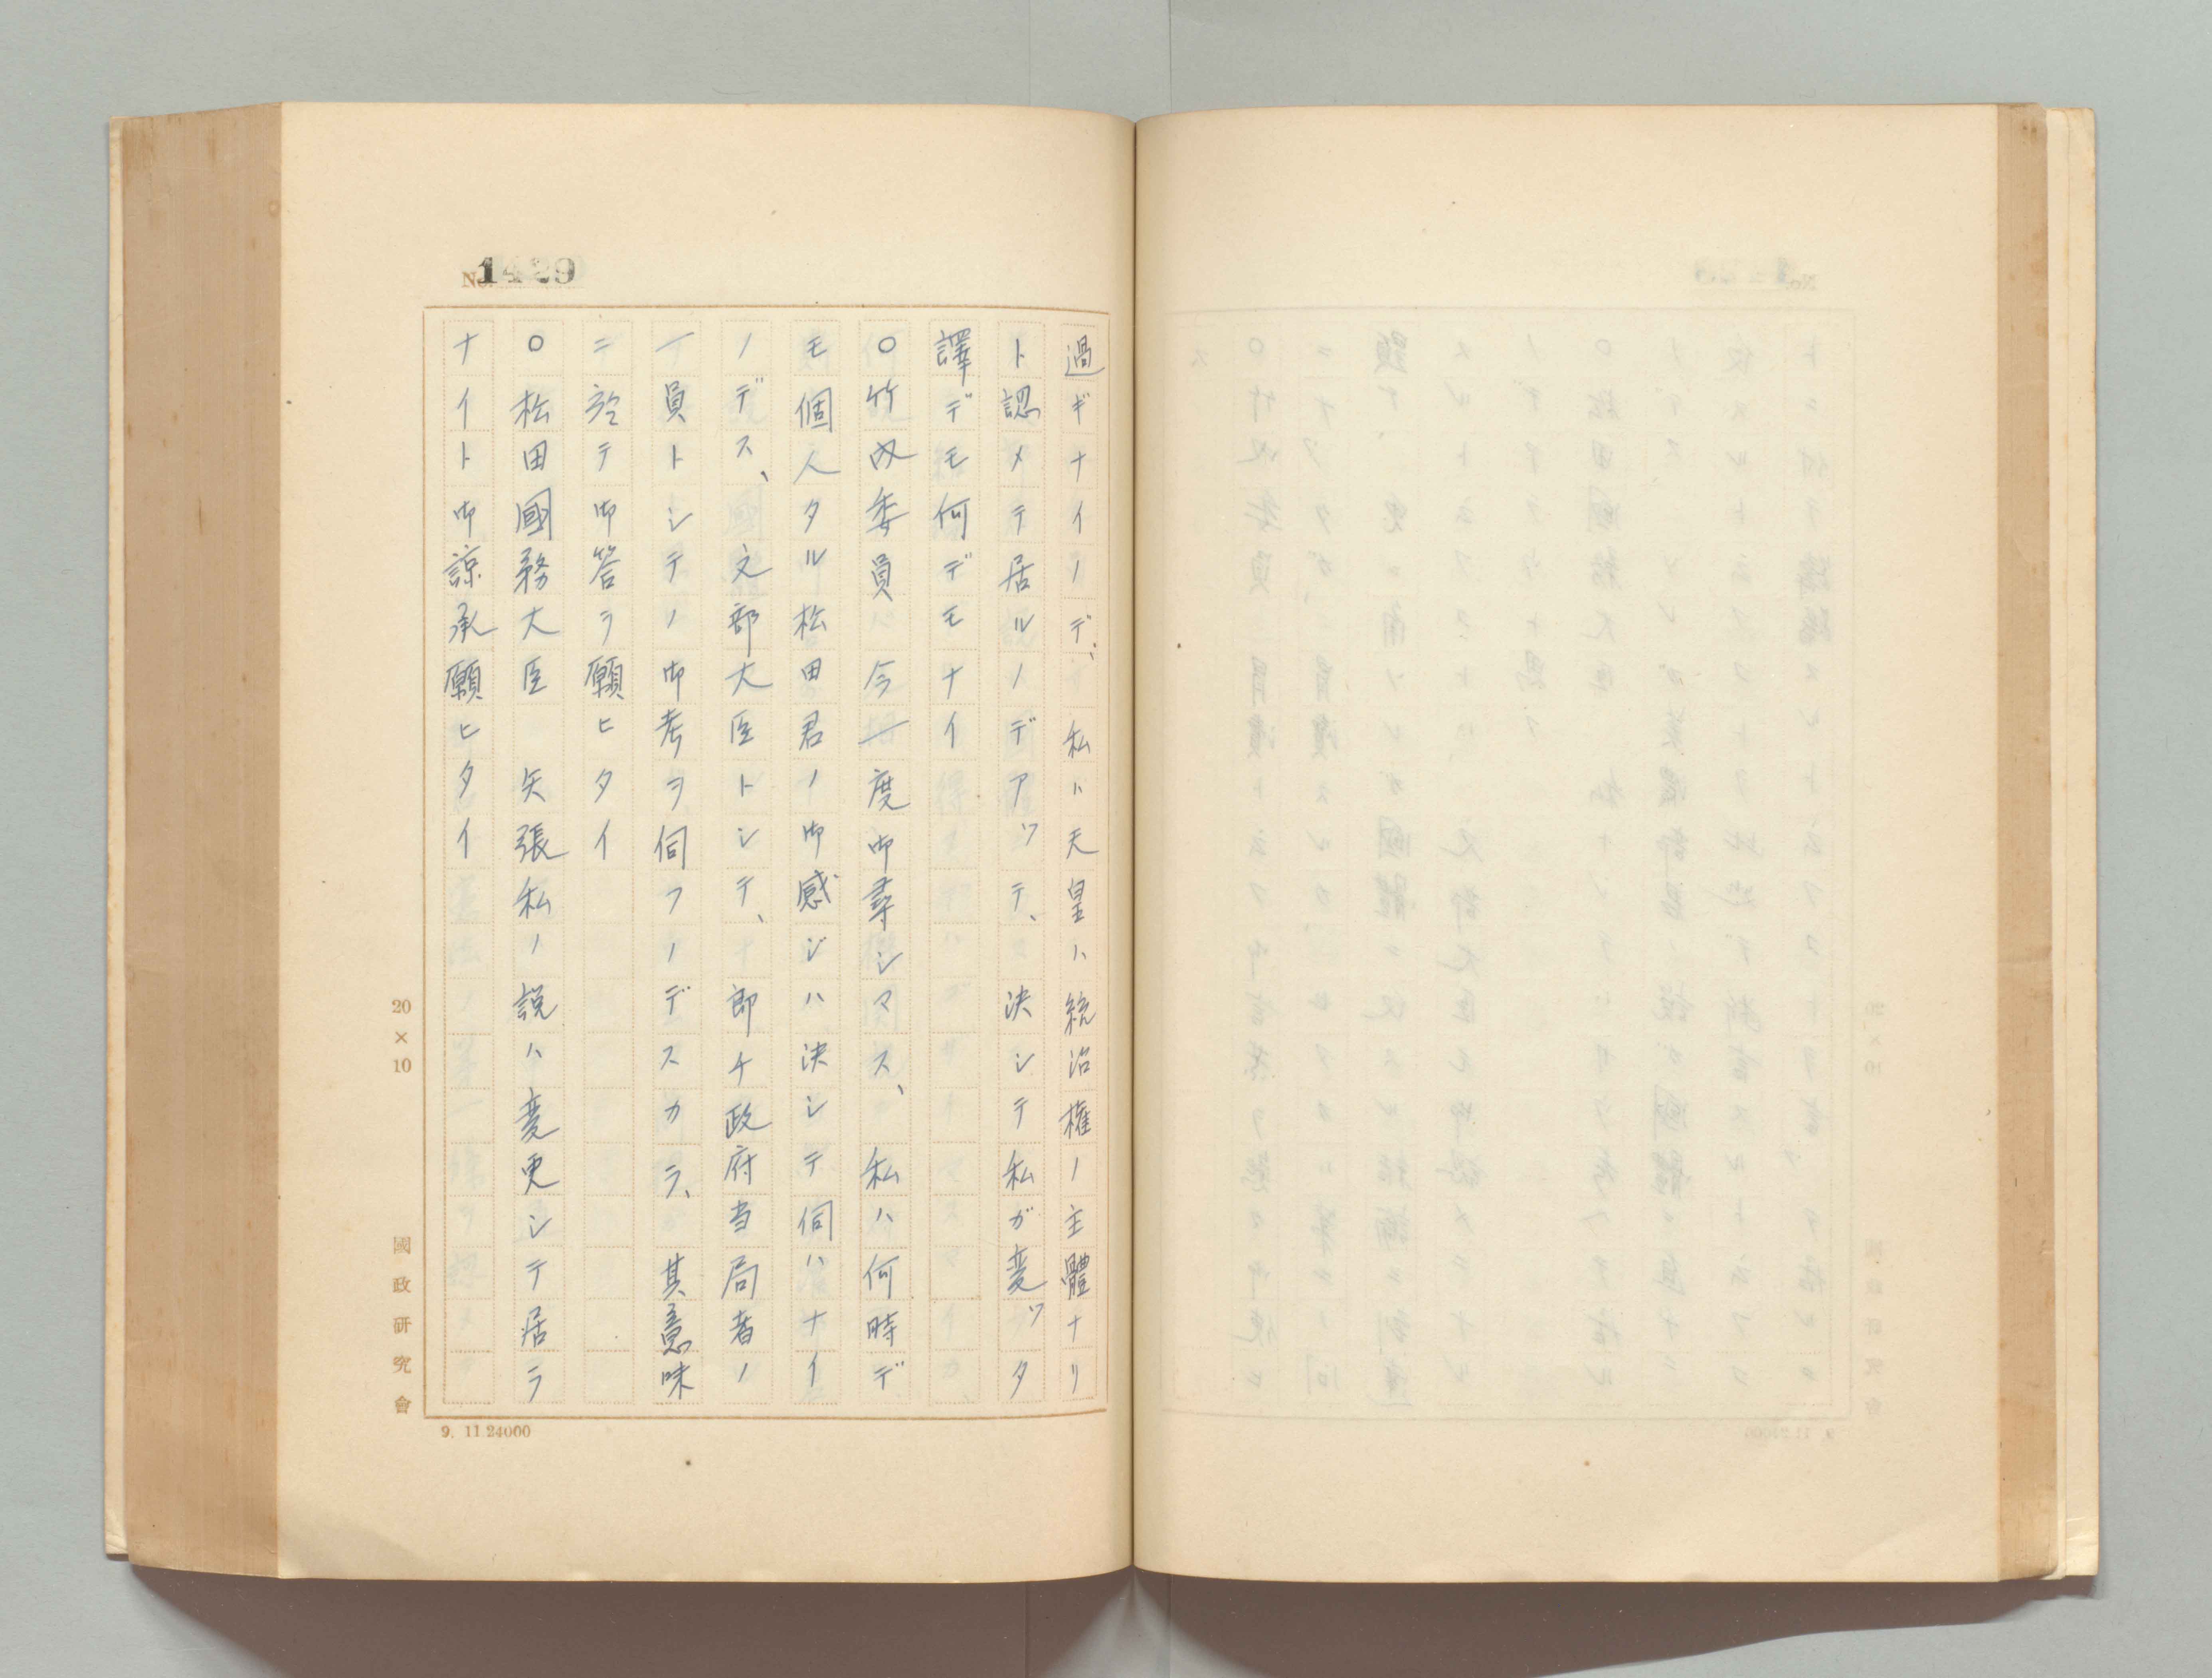 No. 1429
過ギナイノデ、私ハ天皇ハ統治權ノ主體ナリ
ト認メテ居ルノデアツテ、決シテ私ガ変ツタ
譯デモ何デモナイ
○竹内委員 今一度御尋シマス、私ハ何時デ
モ個人タル松田君ノ御感ジハ決シテ伺ハナイ
ノデス、文部大臣トシテ、即チ政府当局者ノ
一員トシテノ御考ヲ伺フノデスカラ、其意味
ニ於テ御答ヲ願ヒタイ
○松田國務大臣 矢張私ノ説ハ変更シテ居ラ
ナイト御諒承願ヒタイ
20×10
國政研究會
9. 11.24000